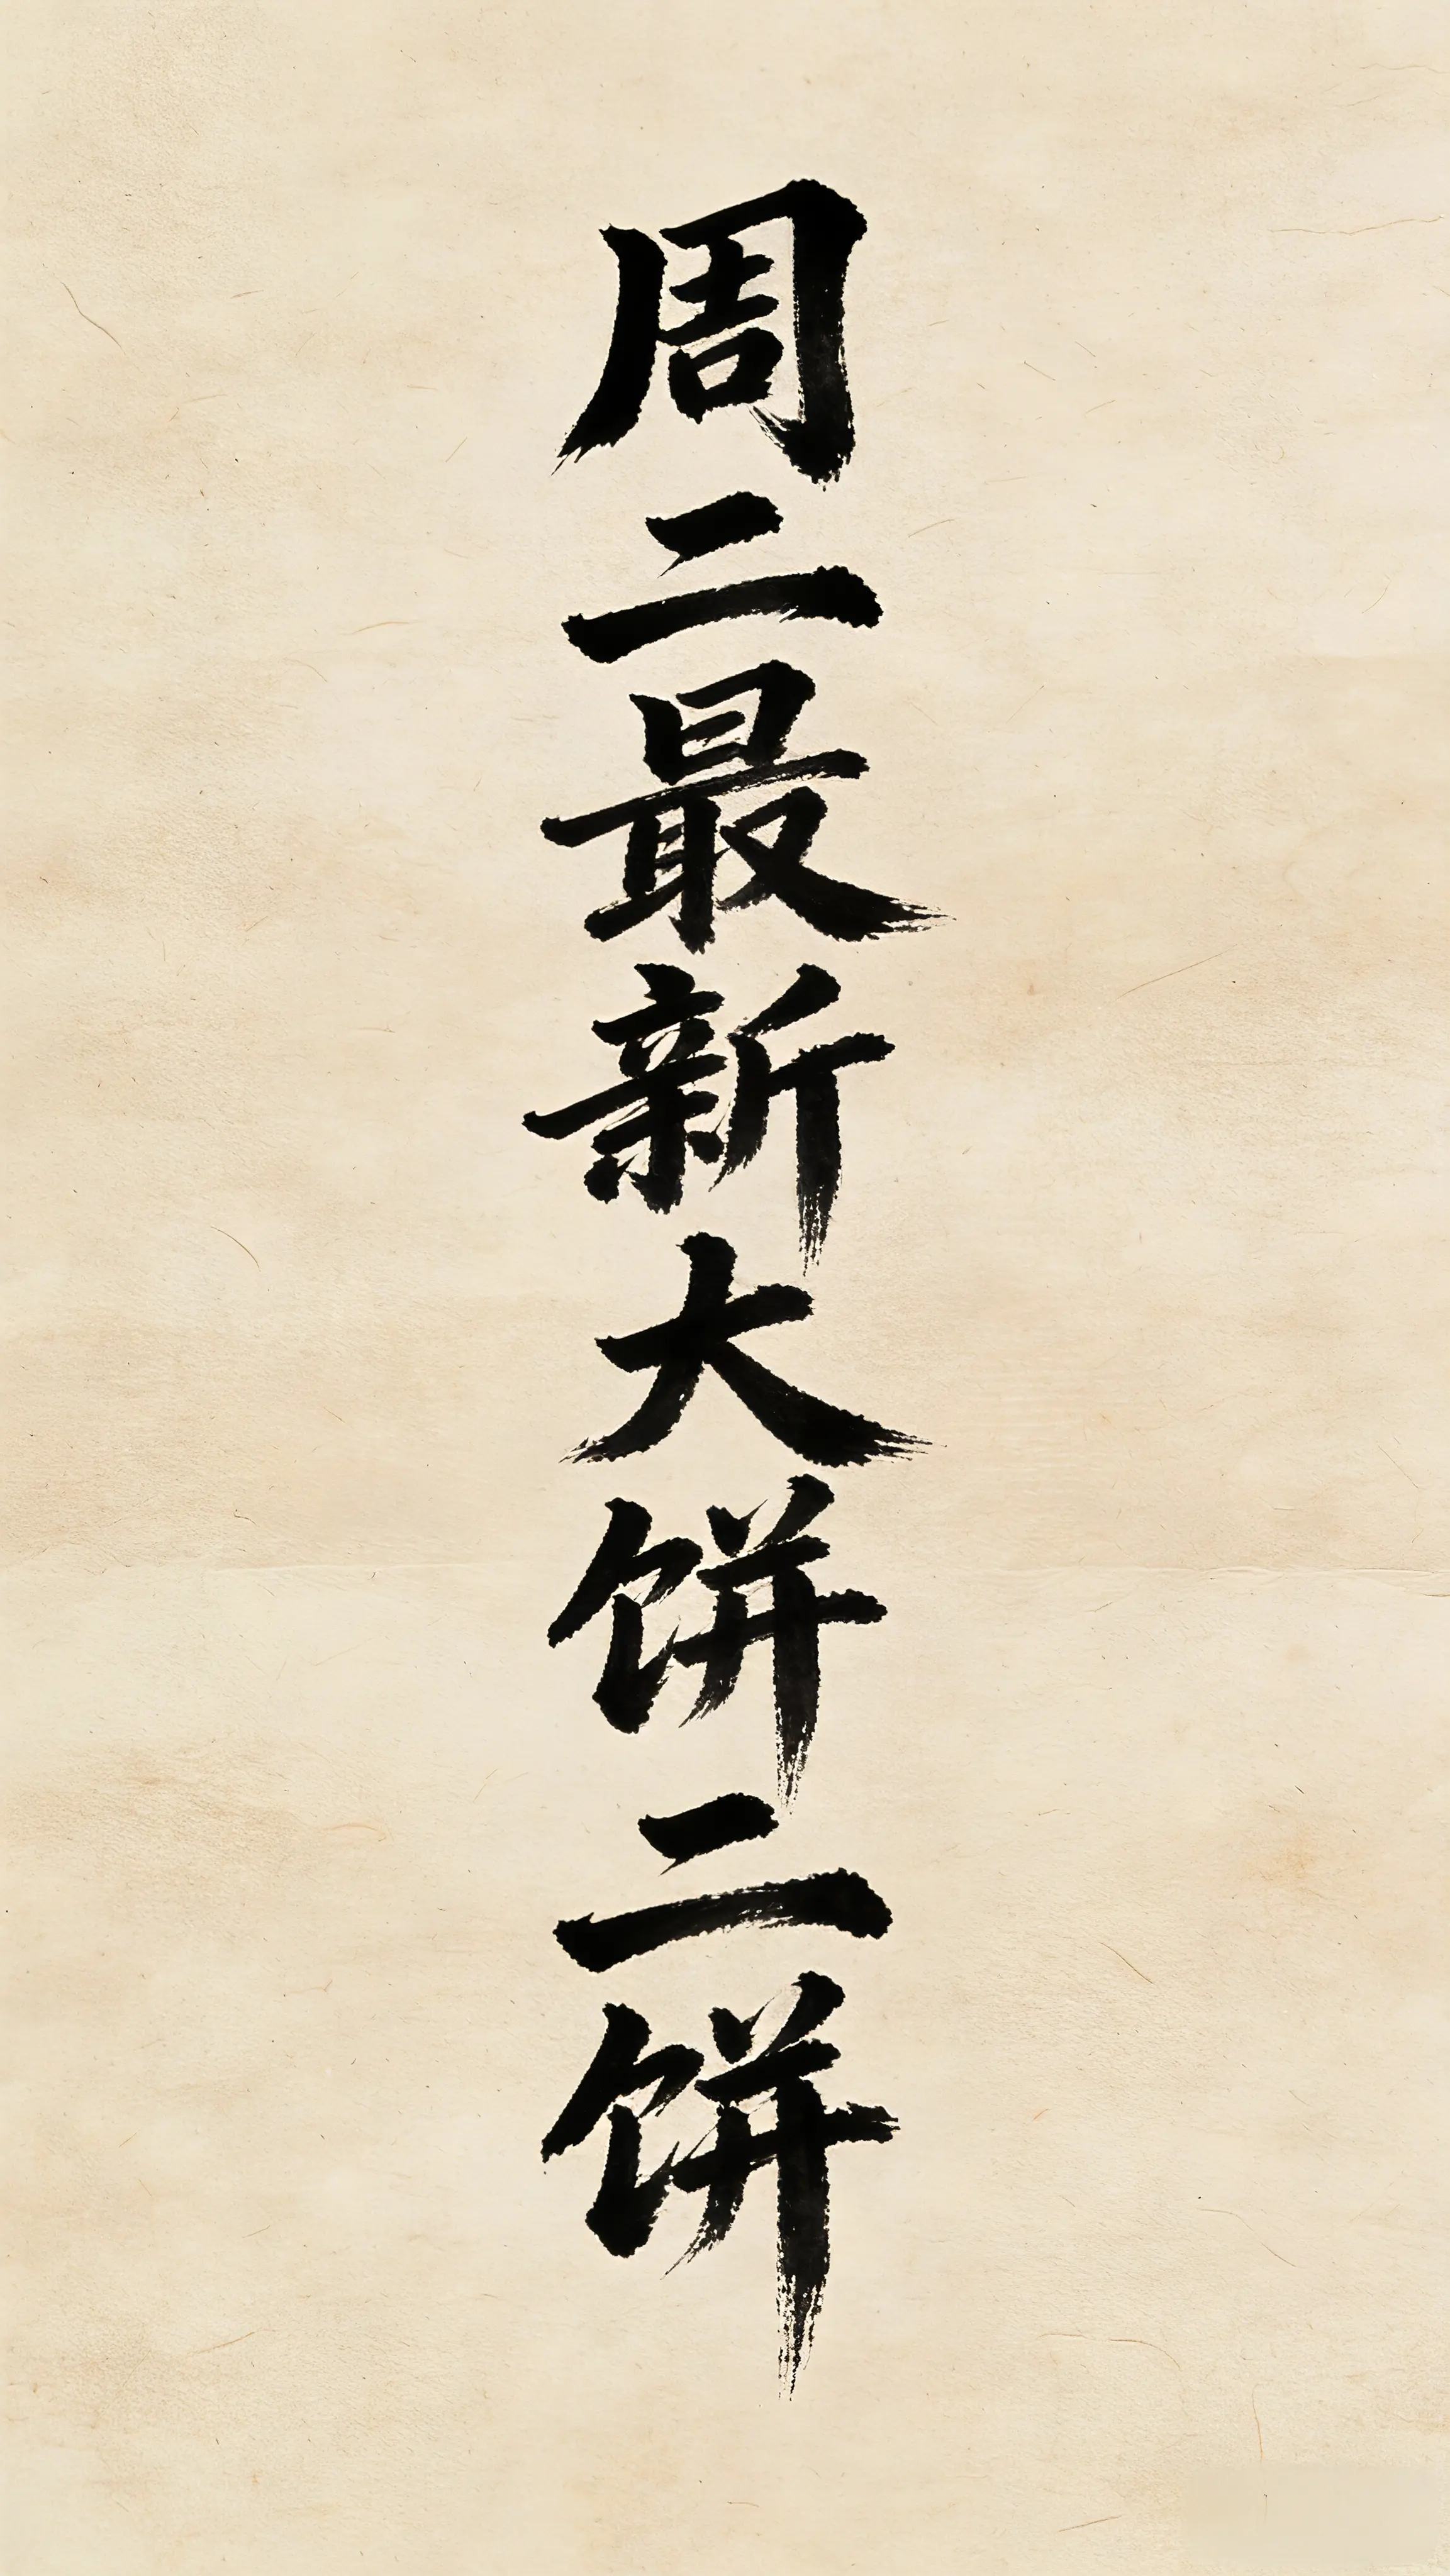 周二最新大饼二饼